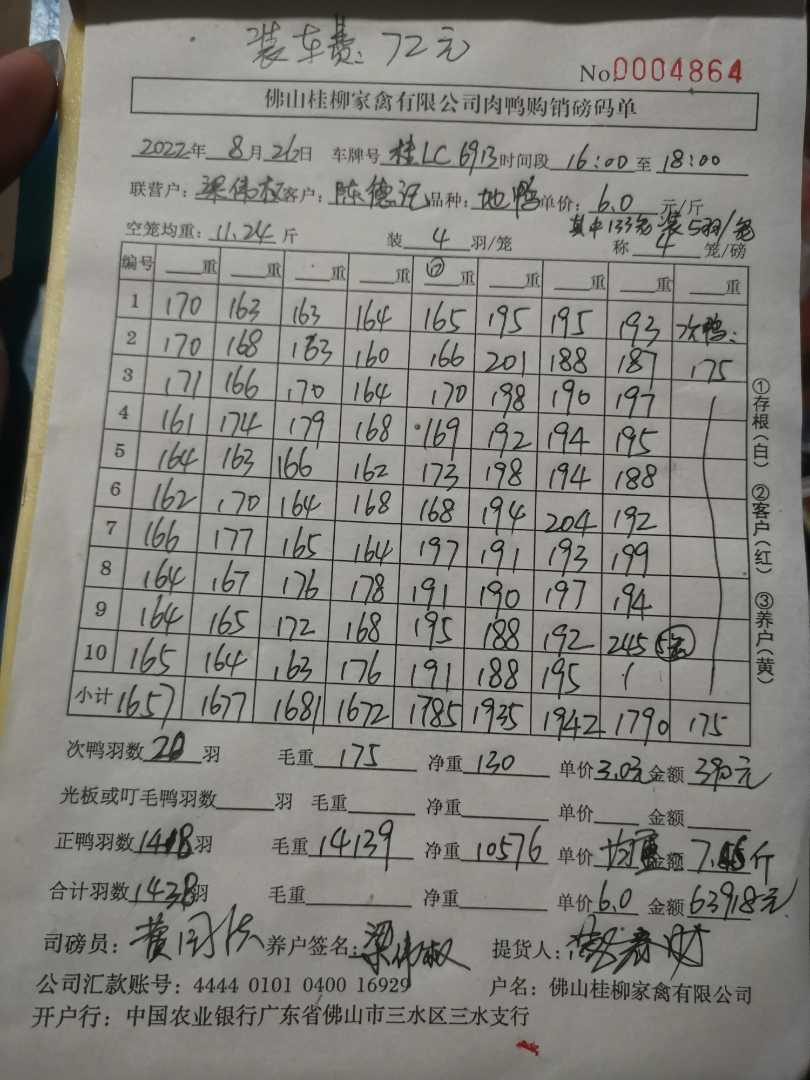 装车费：72元
No 0004864
佛山桂柳家禽有限公司肉鸭购销磅码单
2022年 8月26日 车牌号 桂LC6913 时间段 16:00 至 18:00
联营户：梁伟权 客户：陈德记 品种：地鸭 单价：6.0 元/斤
其中133笼装5羽/笼
空笼均重：11.24 斤 装 4 羽/笼 称 4 笼/磅
编号 重 重 重 重 重 重 重 重 重
1 170 163 163 164 165 195 195 193 次鸭：
2 170 168 163 160 166 201 188 187 175
3 171 166 170 164 170 198 190 197
4 161 174 179 168 169 192 194 195
5 164 163 166 162 173 198 194 188
6 162 170 164 168 168 194 204 192
7 166 177 165 164 197 191 193 199
8 164 167 176 178 191 190 197 194
9 164 165 172 168 195 188 192 245 5笼
10 165 164 163 176 191 188 195
小计 1657 1677 1681 1672 1785 1935 1942 1790 175
次鸭羽数 20 羽 毛重 175 净重 130 单价 3.0元 金额 390元
光板或叮毛鸭羽数 羽 毛重 净重 单价 金额
正鸭羽数 1418 羽 毛重 14139 净重 10576 单价 均重 金额 斤
合计羽数 1438 羽 毛重 净重 单价 6.0 金额 63918元
司磅员： 养户签名：梁伟权 提货人：
公司汇款账号：4444 0101 0400 16929 户名：佛山桂柳家禽有限公司
开户行：中国农业银行广东省佛山市三水区三水支行
①存根（白） ②客户（红） ③养户（黄）